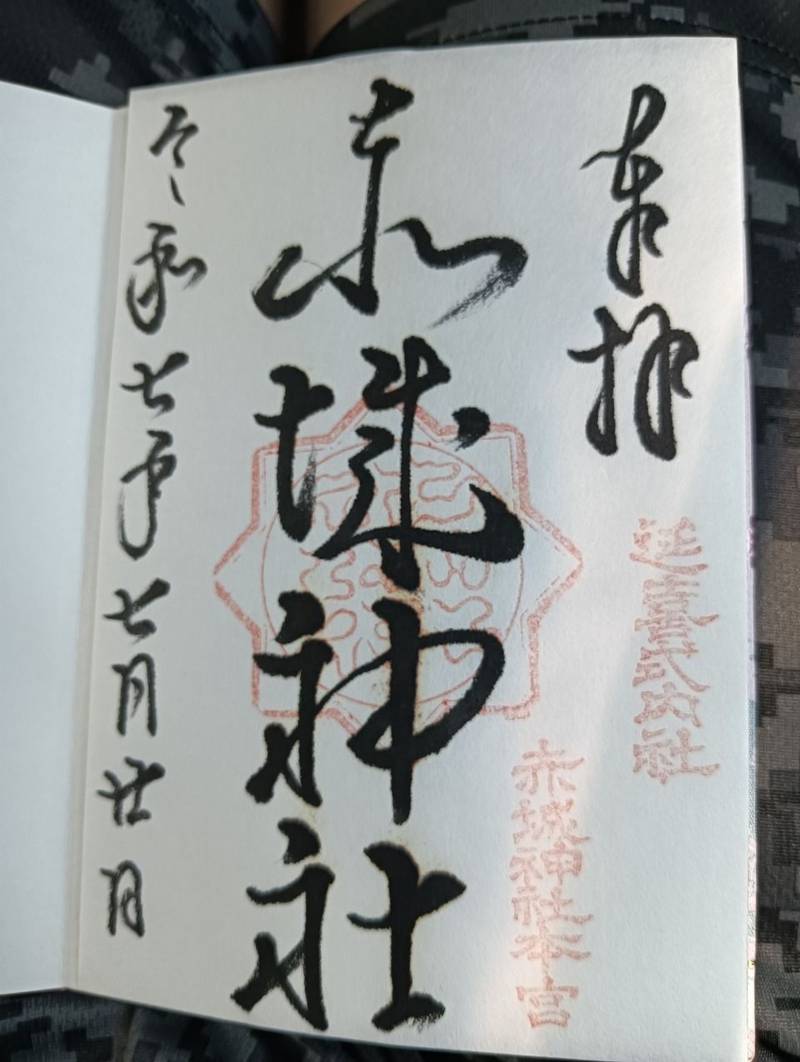 奉拝
延喜式内社
赤城神社本宮
赤城神社
令和七年七月廿日